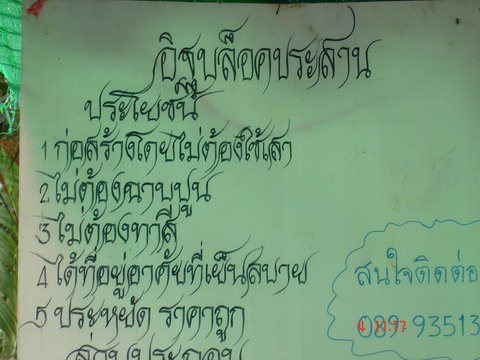 อิฐบล็อคประสาน
ประโยชน์
1 ก่อสร้างโดยไม่ต้องใช้เสา
2 ไม่ต้องฉาบปูน
3 ไม่ต้องทาสี
4 ได้ที่อยู่อาศัยที่เย็นสบาย
5 ประหยัด ราคาถูก
สนใจติดต่อ
089-93513